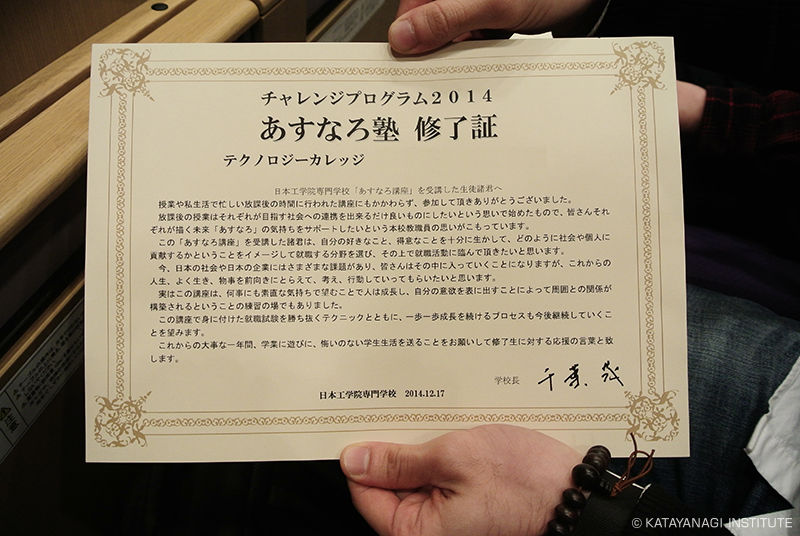 チャレンジプログラム2014
あすなろ塾 修了証
テクノロジーカレッジ
日本工学院専門学校「あすなろ講座」を受講した生徒諸君へ
授業や私生活で忙しい放課後の時間に行われた講座にもかかわらず、参加して頂きありがとうございました。
放課後の授業はそれぞれが目指す社会への連携を出来るだけ良いものにしたいという思いで始めたもので、皆さんそれ
ぞれが描く未来「あすなろ」の気持ちをサポートしたいという本校教職員の思いがこもっています。
この「あすなろ講座」を受講した諸君は、自分の好きなこと、得意なことを十分に生かして、どのように社会や個人に
貢献するかということをイメージして就職する分野を選び、その上で就職活動に臨んで頂きたいと思います。
今、日本の社会や日本の企業にはさまざまな課題があり、皆さんはその中に入っていくことになりますが、これからの
人生、よく生き、物事を前向きにとらえて、考え、行動していってもらいたいと思います。
実はこの講座は、何事にも素直な気持ちで望むことで人は成長し、自分の意欲を表に出すことによって周囲との関係が
構築されるということの練習の場でもありました。
この講座で身に付けた就職試験を勝ち抜くテクニックとともに、一歩一歩成長を続けるプロセスも今後継続していくこ
とを望みます。
これからの大事な一年間、学業に遊びに、悔いのない学生生活を送ることをお願いして修了生に対する応援の言葉と致
します。
学校長 千葉 茂
日本工学院専門学校 2014.12.17
© KATAYANAGI INSTITUTE